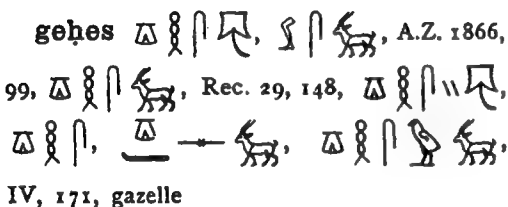 geḥes 𓎼𓎛𓋴𓄛, 𓋴, A.Z. 1866,
99, 𓎼𓎛𓋴, Rec. 29, 148, 𓎼𓎛𓋴𓏭𓄛,
𓎼𓎛𓋴, 𓎼𓊃, 𓎼𓎛𓋴𓅱,
IV, 171, gazelle